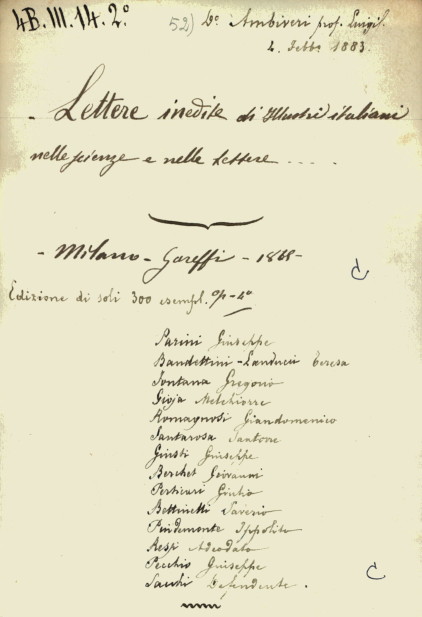 4B.III.14.2º
52) Dº Ambiveri prof. Luigi.
4. Febbº 1883.
- Lettere inedite di Illustri italiani
nelle scienze e nelle Lettere ....
- Milano - Gareffi - 1868 -
Edizione di soli 300 esempl. op - 4º
Parini Giuseppe
Bandettini-Landucci Teresa
Fontana Gregorio
Gioja Melchiorre
Romagnosi Giandomenico
Santarosa Santorre
Giusti Giuseppe
Berchet Giovanni
Perticari Giulio
Bettinelli Saverio
Pindemonte Ippolito
Respi Adeodato
Pecchio Giuseppe
Sacchi Defendente.